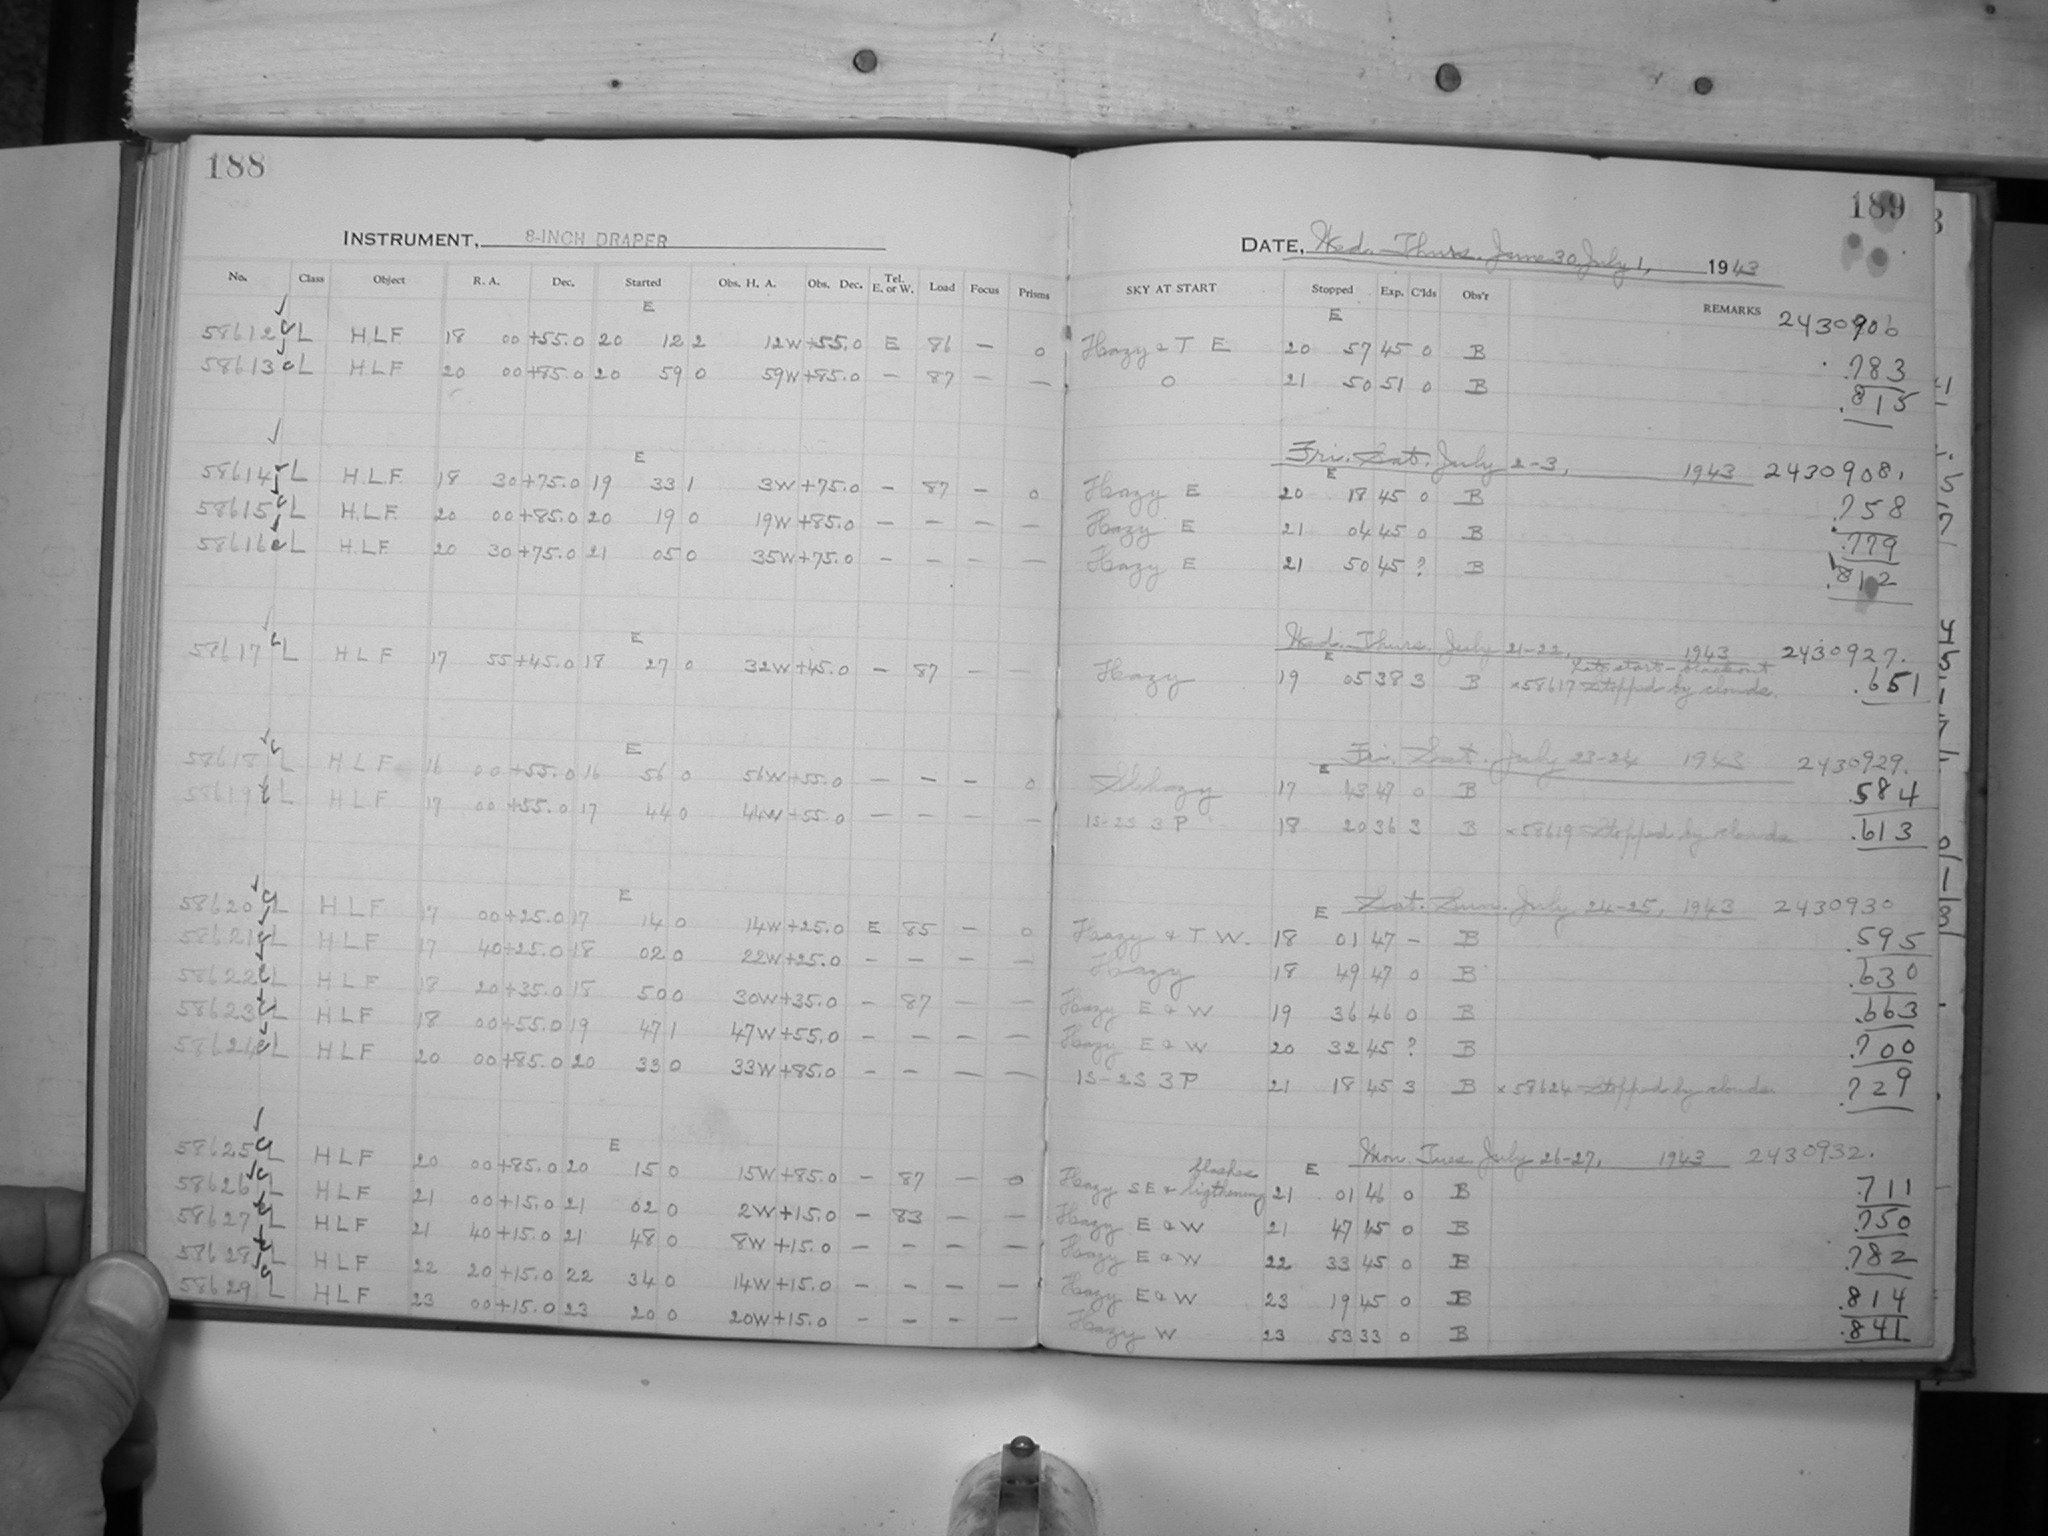 188
INSTRUMENT, 8-INCH DRAPER
No. Class Object R. A. Dec. Started Obs. H. A. Obs. Dec. Tel. E. or W. Load Focus Prisms
E
58612 L HLF 18 00 +55.0 20 12 2 12W +55.0 E 86 — 0
58613 L HLF 20 00 +85.0 20 59 0 59W +85.0 — 87 — —
E
58614 L H.L.F. 18 30 +75.0 19 33 1 3W +75.0 — 87 — 0
58615 L H.L.F. 20 00 +85.0 20 19 0 19W +85.0 — — — —
58616 L H.L.F. 20 30 +75.0 21 05 0 35W +75.0 — — — —
E
58617 L HLF 17 55 +45.0 18 27 0 32W +45.0 — 87 — —
E
58618 L HLF 16 00 +55.0 16 56 0 56W +55.0 — — — 0
58619 L HLF 17 00 +55.0 17 44 0 44W +55.0 — — — —
E
58620 L HLF 17 00 +25.0 17 14 0 14W +25.0 E 85 — 0
58621 L HLF 17 40 +25.0 18 02 0 22W +25.0 — — — —
58622 L HLF 18 20 +35.0 18 50 0 30W +35.0 — 87 — —
58623 L HLF 18 00 +55.0 19 47 1 47W +55.0 — — — —
58624 L HLF 20 00 +85.0 20 33 0 33W +85.0 — — — —
E
58625 L HLF 20 00 +85.0 20 15 0 15W +85.0 — 87 — 0
58626 L HLF 21 00 +15.0 21 02 0 2W +15.0 — 83 — —
58627 L HLF 21 40 +15.0 21 48 0 8W +15.0 — — — —
58628 L HLF 22 20 +15.0 22 34 0 14W +15.0 — — — —
58629 L HLF 23 00 +15.0 23 20 0 20W +15.0 — — — —
189
DATE, Wed. Thurs. June 30, July 1, 1943
SKY AT START Stopped Exp. C'lds Obs'r REMARKS 2430906
E
Hazy & T E 20 57 45 0 B .783
0 21 50 51 0 B .815
Fri. Sat. July 2-3, 1943 2430908.
E
Hazy E 20 18 45 0 B .758
Hazy E 21 04 45 0 B .779
Hazy E 21 50 45 ? B .812
Wed. Thurs. July 21-22, 1943 2430927.
E late start - blackout
Hazy 19 05 38 3 B x58617 Stopped by clouds. .651
Fri. Sat. July 23-24 1943 2430929.
E
Sl hazy 17 43 47 0 B .584
1S-2S 3P 18 20 36 3 B x58619 Stopped by clouds .613
E Sat. Sun. July 24-25, 1943 2430930
Hazy & T W. 18 01 47 — B .595
Hazy 18 49 47 0 B .630
Hazy E & W 19 36 46 0 B .663
Hazy E & W 20 32 45 ? B .700
1S-2S 3P 21 18 45 3 B x58624 Stopped by clouds .729
E Mon. Tues. July 26-27, 1943 2430932.
flashes
Hazy SE & ligthening 21 01 46 0 B .711
Hazy E & W 21 47 45 0 B .750
Hazy E & W 22 33 45 0 B .782
Hazy E & W 23 19 45 0 B .814
Hazy W 23 53 33 0 B .841